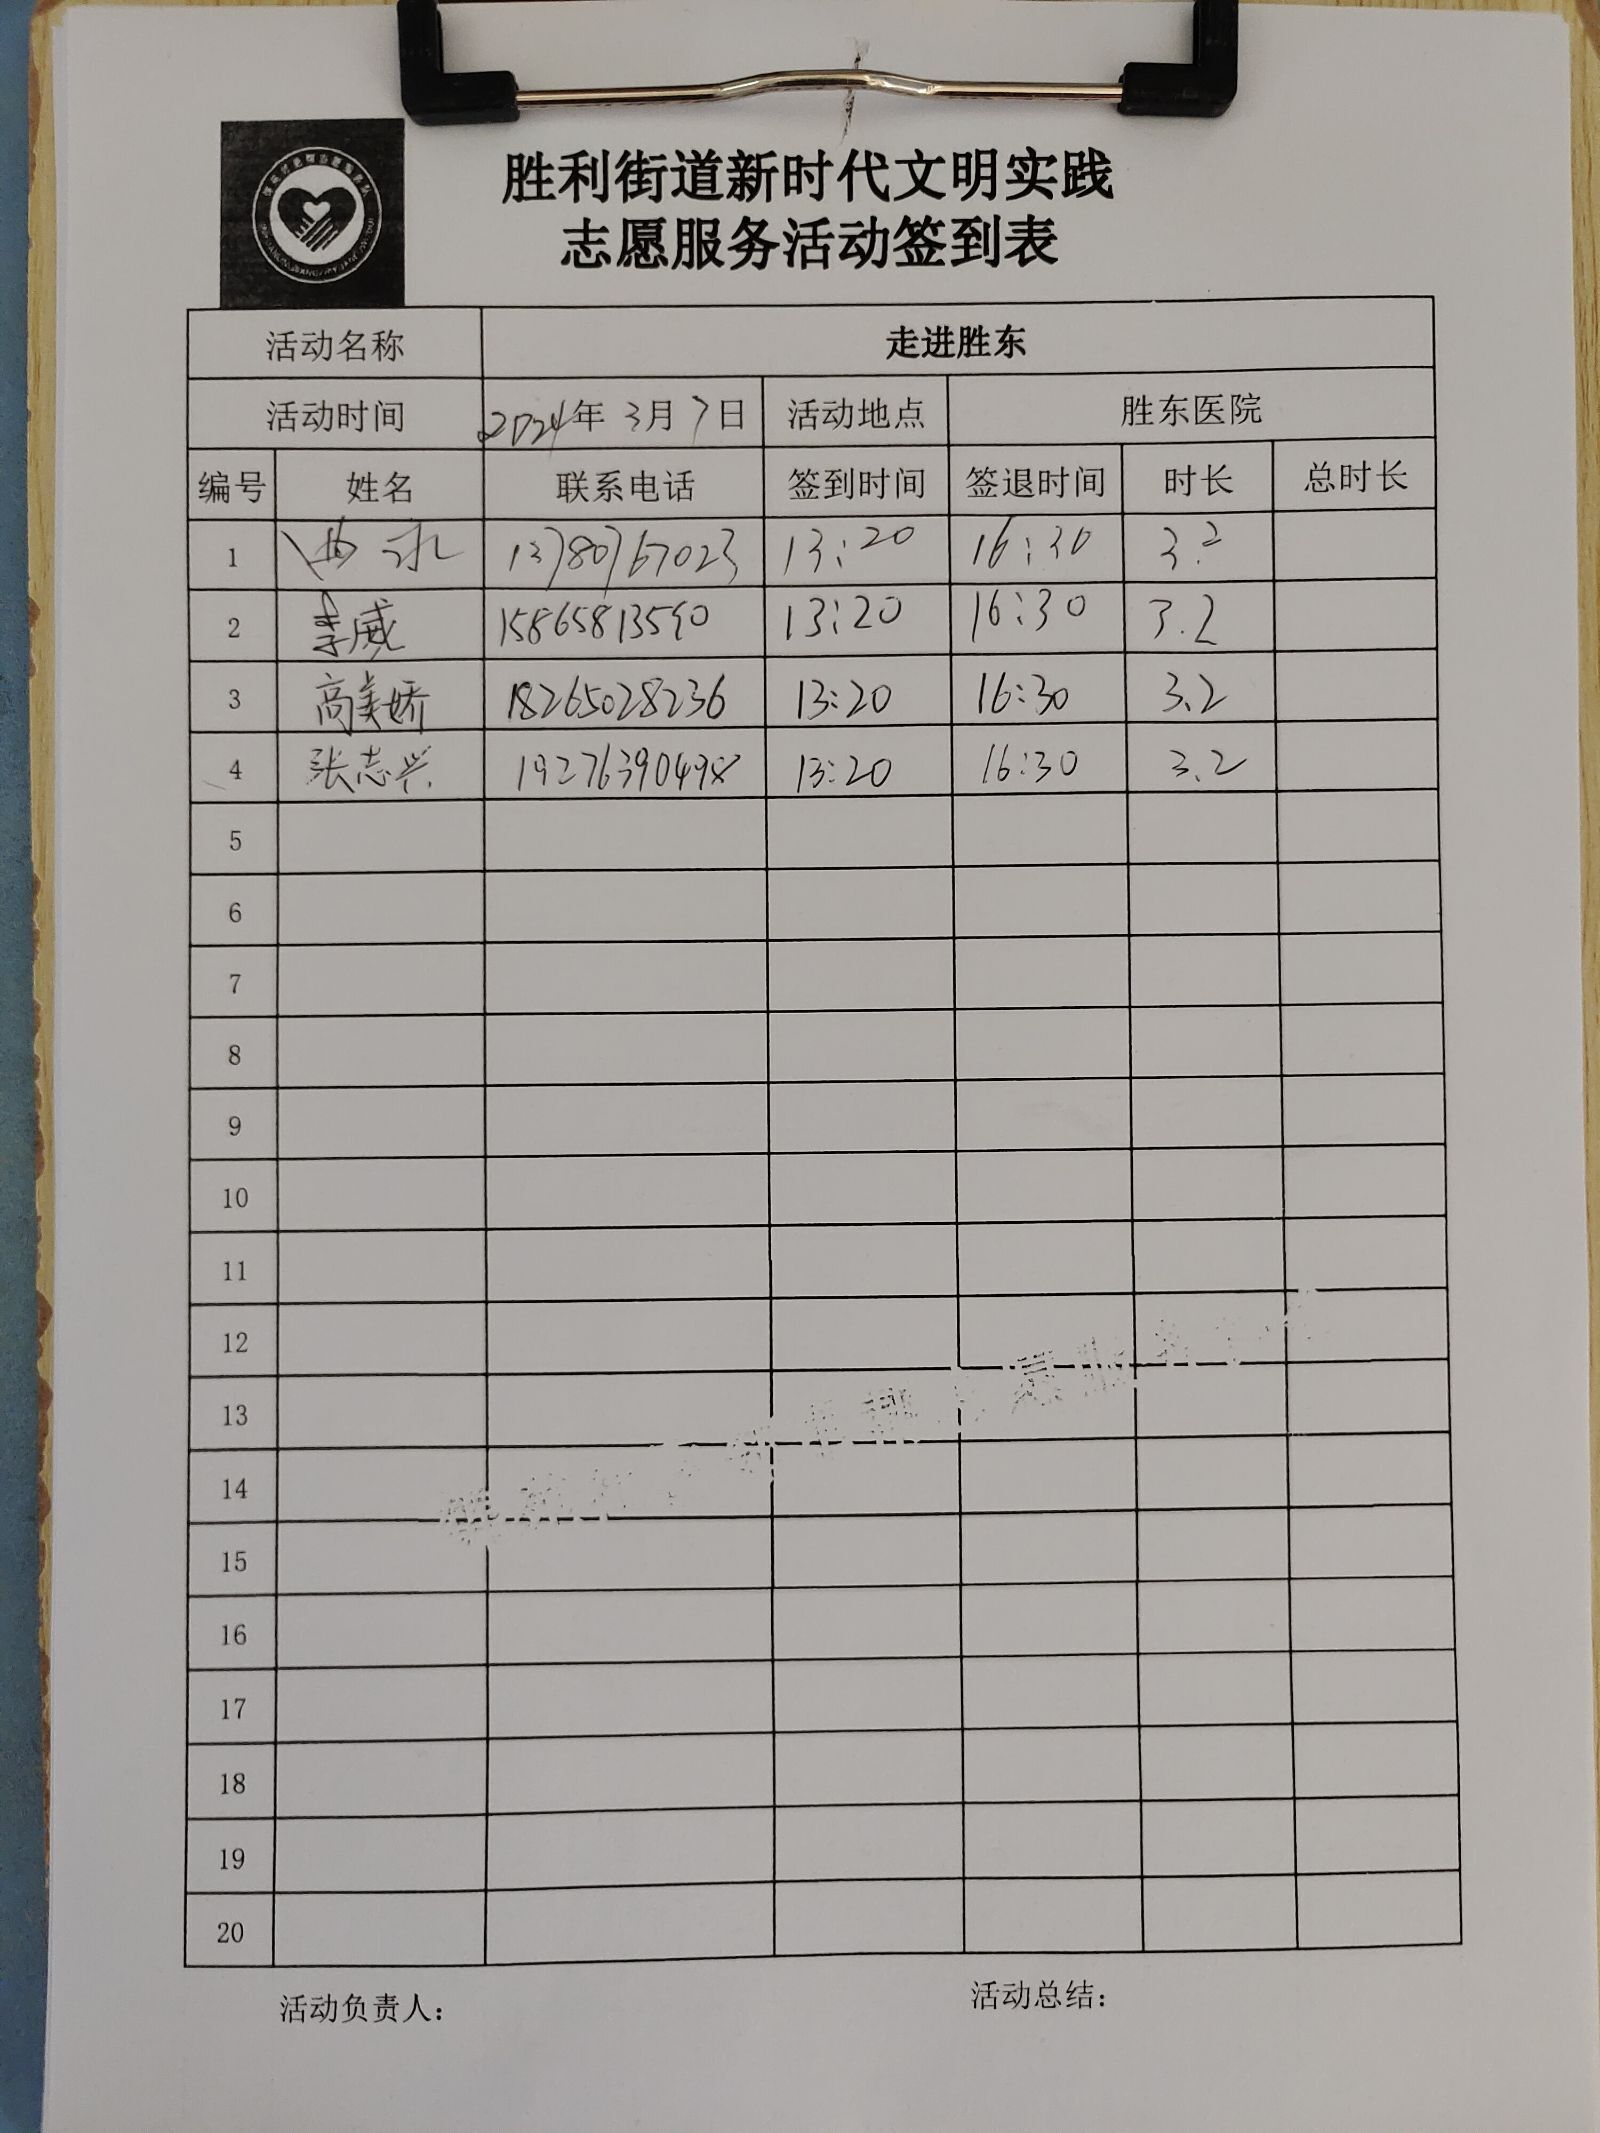 胜利街道新时代文明实践
志愿服务活动签到表
活动名称 走进胜东
活动时间 2024年 3月 7日 活动地点 胜东医院
编号 姓名 联系电话 签到时间 签退时间 时长 总时长
1 13780767023 13:20 16:30 3.2
2 李威 15865813590 13:20 16:30 3.2
3 高美娇 18265028236 13:20 16:30 3.2
4 张志兴 19276390498 13:20 16:30 3.2
5
6
7
8
9
10
11
12
13
14
15
16
17
18
19
20
活动负责人： 活动总结：